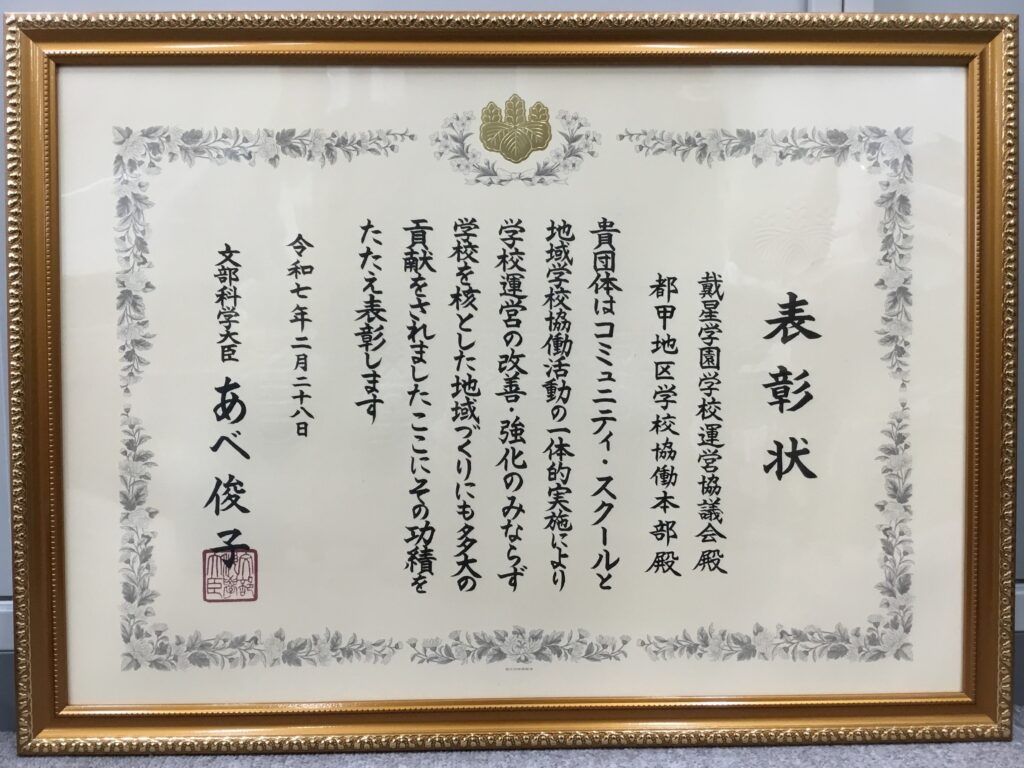 表彰状
戴星学園学校運営協議会殿
都甲地区学校協働本部殿
貴団体はコミュニティ・スクールと
地域学校協働活動の一体的実施により
学校運営の改善・強化のみならず
学校を核とした地域づくりにも多大の
貢献をされましたここにその功績を
たたえ表彰します
令和七年二月二十八日
文部科学大臣 あべ俊子
文部科学大臣